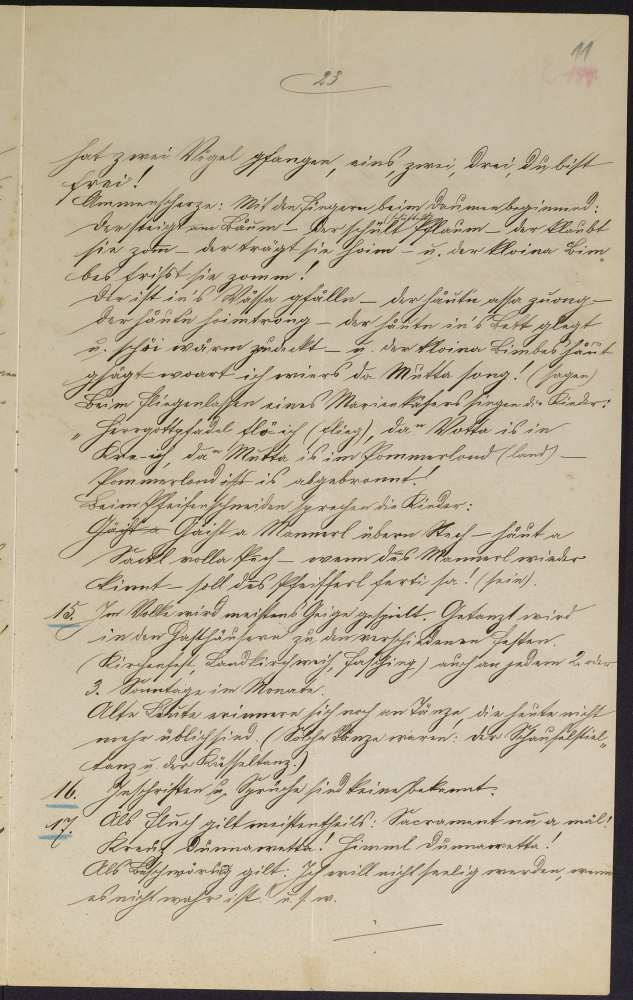 11
23
hat zwei Vögel gfangen, eins zwei, drei, du bist
frei!
Ammenscherze: Mit den Fingern beim Daumen beginnend:
Der steigt am Baum – der schült Pflaum – der klaubt
sie zom – der trägt sie hoim – u. der kloina Bim
bes frißt sie zomm!
Der ist in's Wassa gfålln – der håutn assa zuong –
der håutn hoimtrong – der håutn in's Bett glegt
u. schöi wårm zudeckt – u. der kloina Bimbes håut
gsågt woart ich wiers da Mutta song! (sagen)
Beim Fliegenlassen eines Marienkäfers singen die Kinder:
"Herrgottpfådel flöich (flieg), da Votta is in
, da Mutta is im Pommerlond (land) –
Pommerlond ist is abgebronnt!
Beim Pfeifenschneiden sprechen die Kinder:
Gäiht a Mannerl übern Stech – håut a
Såckl volla Pech – wenn des Mannerl wieder
kinnt – soll des Pfeifferl ferti sa! (sein).
15. Im Volke wird meistens Geige gespielt. Getanzt wird
in den Gasthäusern zu den verschiedenen Festen.
(Kirchenfest, Landkirchweih, Fasching) auch an jedem 2. oder
3. Sonntage im Monate.
Alte Leute erinnern sich noch an Tänze, die heute nicht
mehr üblich sind, (Solche Tänze waren: der Schaufelstiel-
tanz u. der .)
16. Inschriften u. Sprüche sind keine bekannt.
17. Als Fluch gilt meistentheils: Sacrament nu a mål!
Kreuz Dunnawetta! Himml Dunnawetta!
Als Beschwörung gilt: Ich will nicht seelig werden, wenn
es nicht wahr ist! u. s. w.